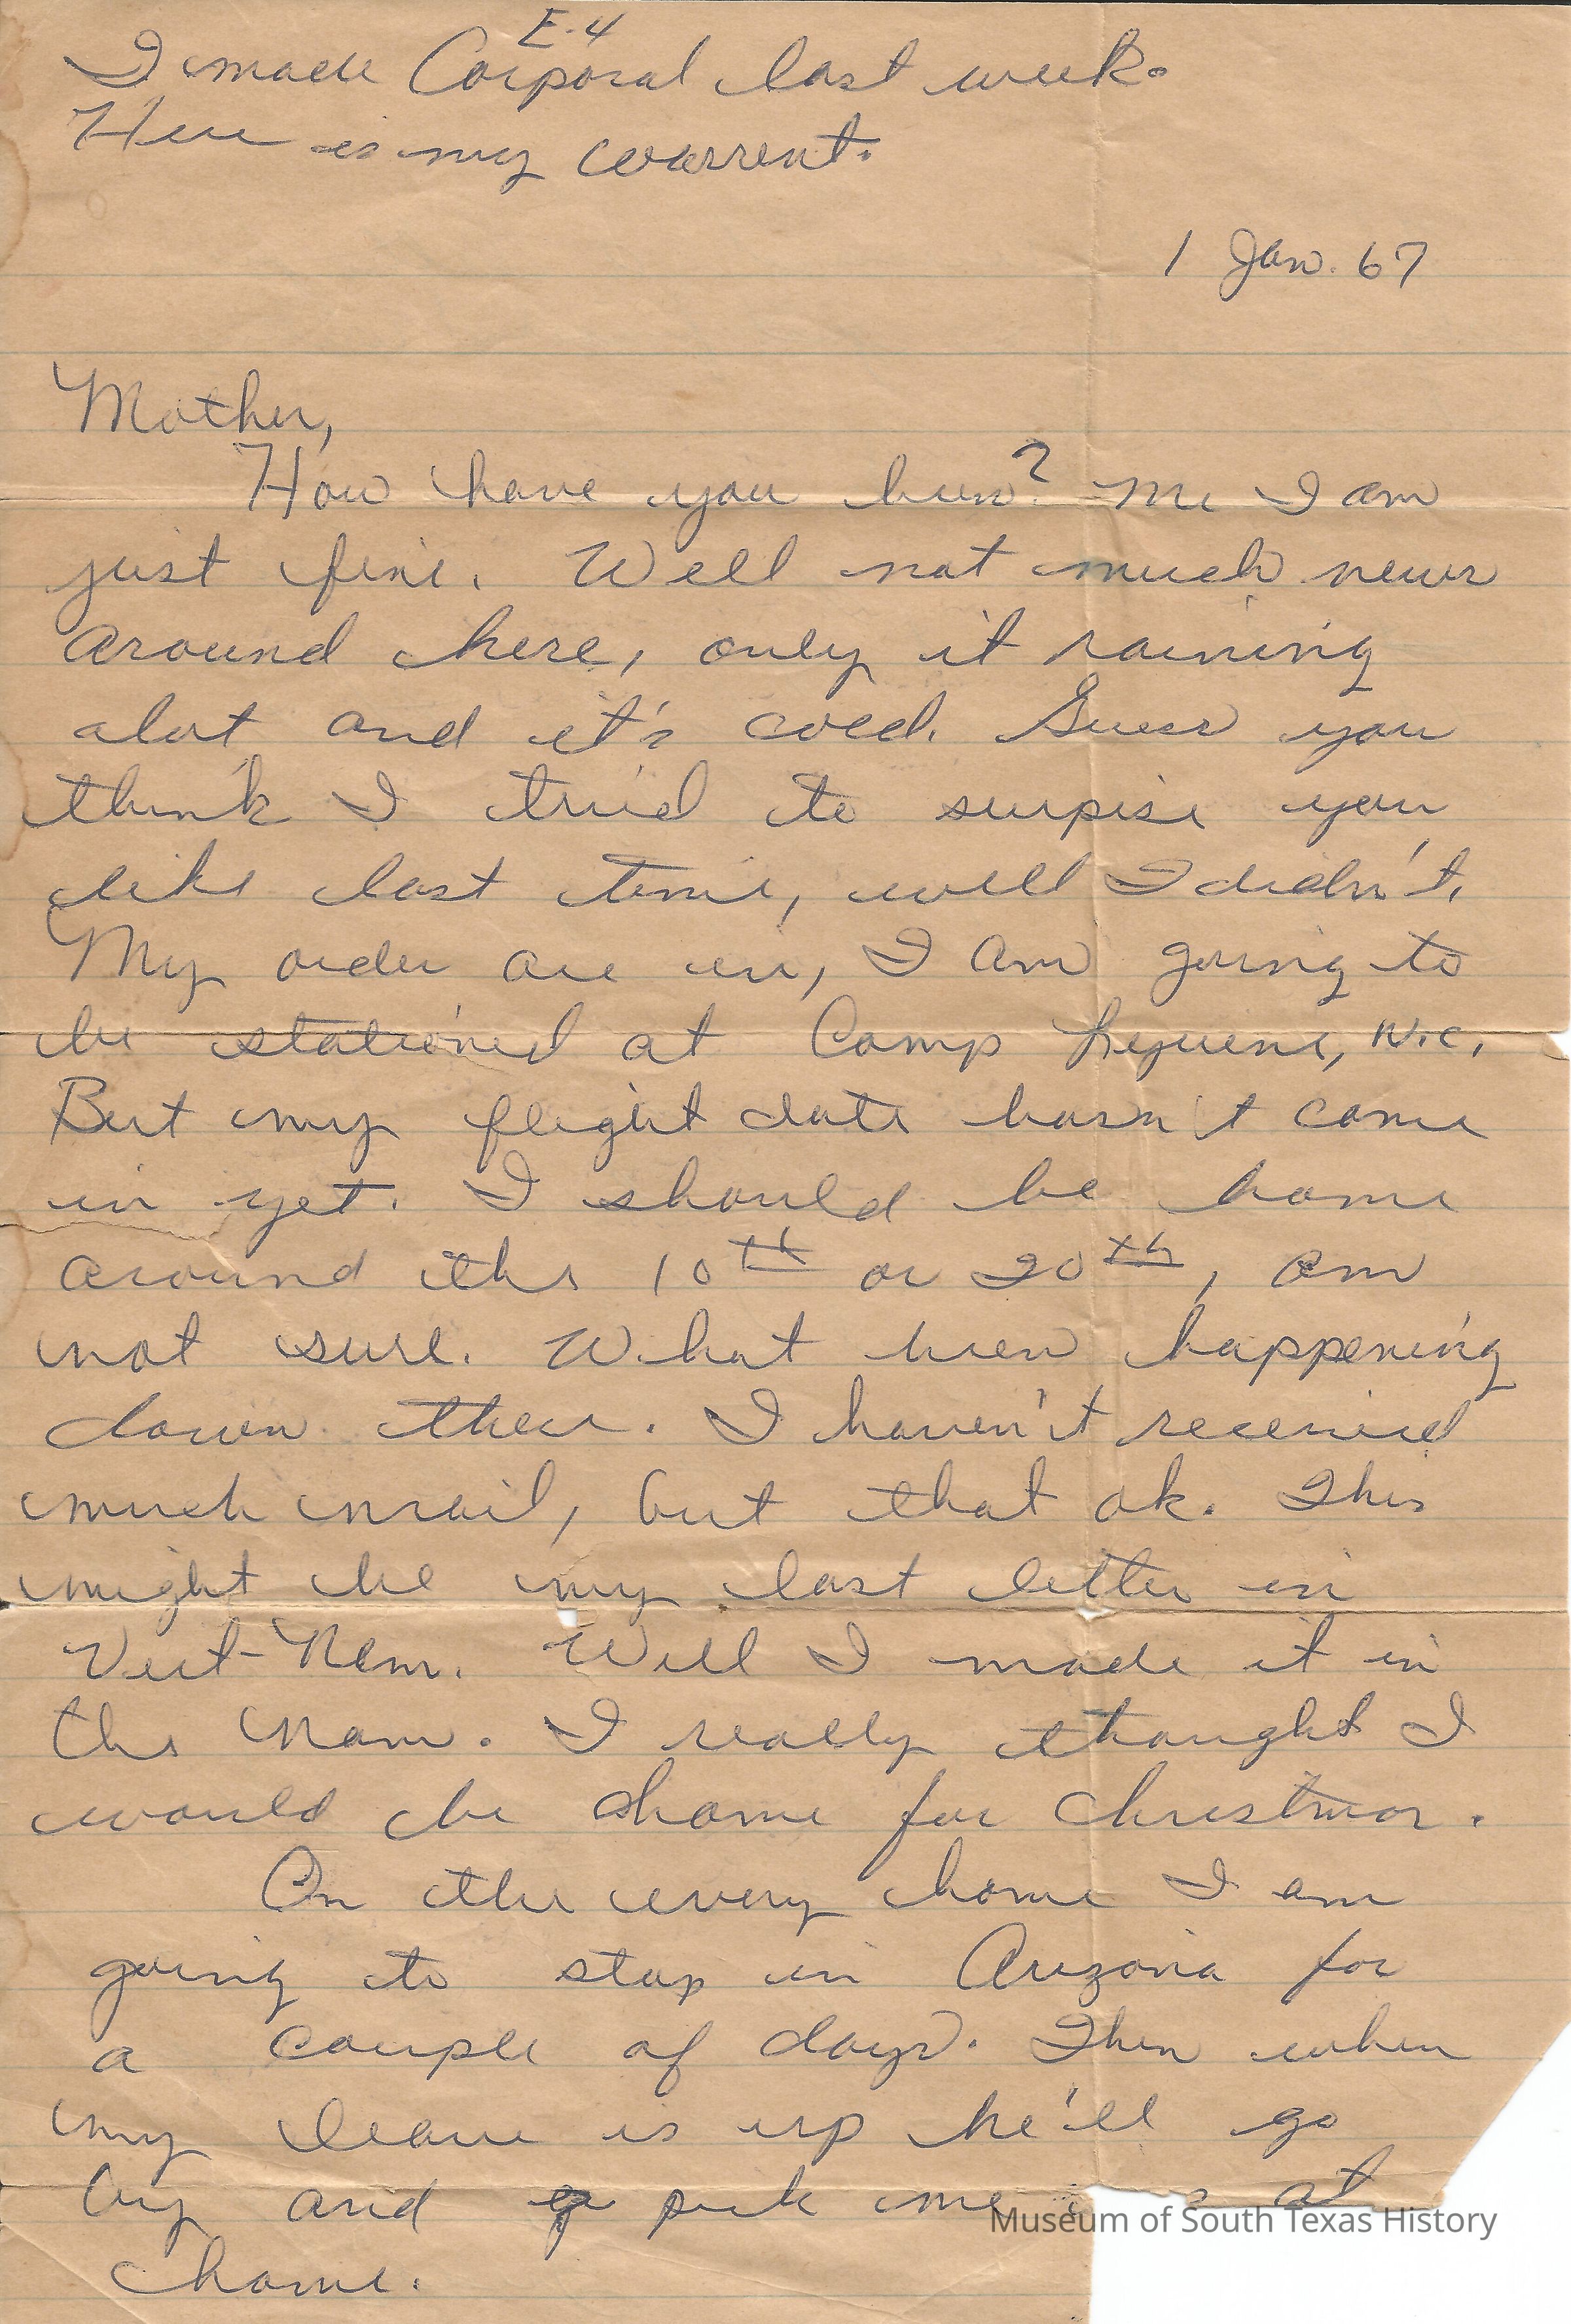 E-4
I made Corporal last week.
Here is my warrent.
1 Jan. 67
Mother,
How have you been? Me I am
just fine. Well not much news
around here, only it raining
alot and it's cold. Guess you
think I tried to surpise you
like last time, well I didn't.
My order are in, I am going to
be stationed at Camp Lejuene, N.C.
But my flight date hasn't come
in yet. I should be home
around the 10th or 20th, am
not sure. What been happening
down there. I haven't received
much mail, but that ok. This
might be my last letter in
Viet-Nam. Well I made it in
the Nam. I really thought I
would be home for Christmas.
On the way home I am
going to stop in Arizona for
a couple of days. Then when
my leave is up he'll go
by and pick me at
home.
Museum of South Texas History